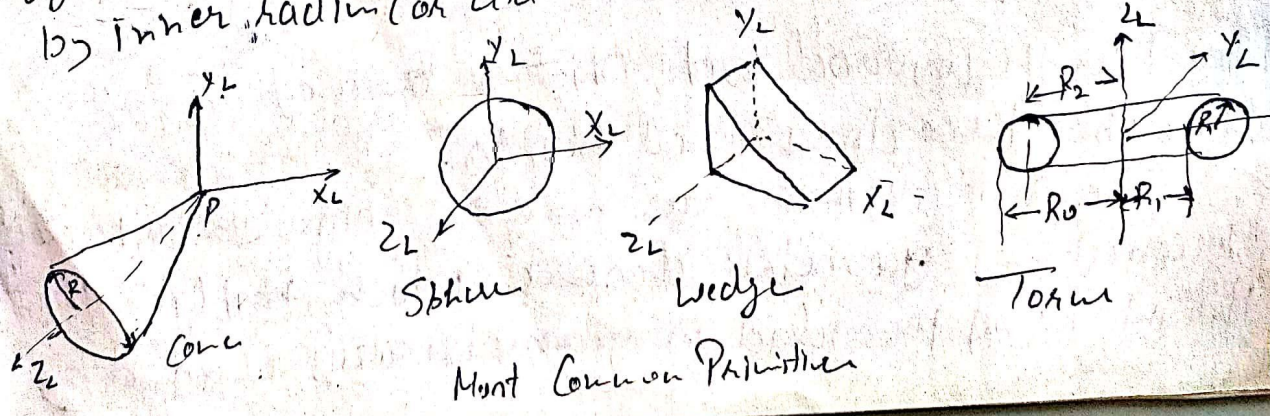 by inner radius (or
Y_L
X_L
P
R
Z_L
Cone
Y_L
X_L
Z_L
Sphere
Y_L
X_L
Z_L
Wedge
Z_L
Y_L
R_2
R
R_0
R_1
Torus
Most Common Primitives